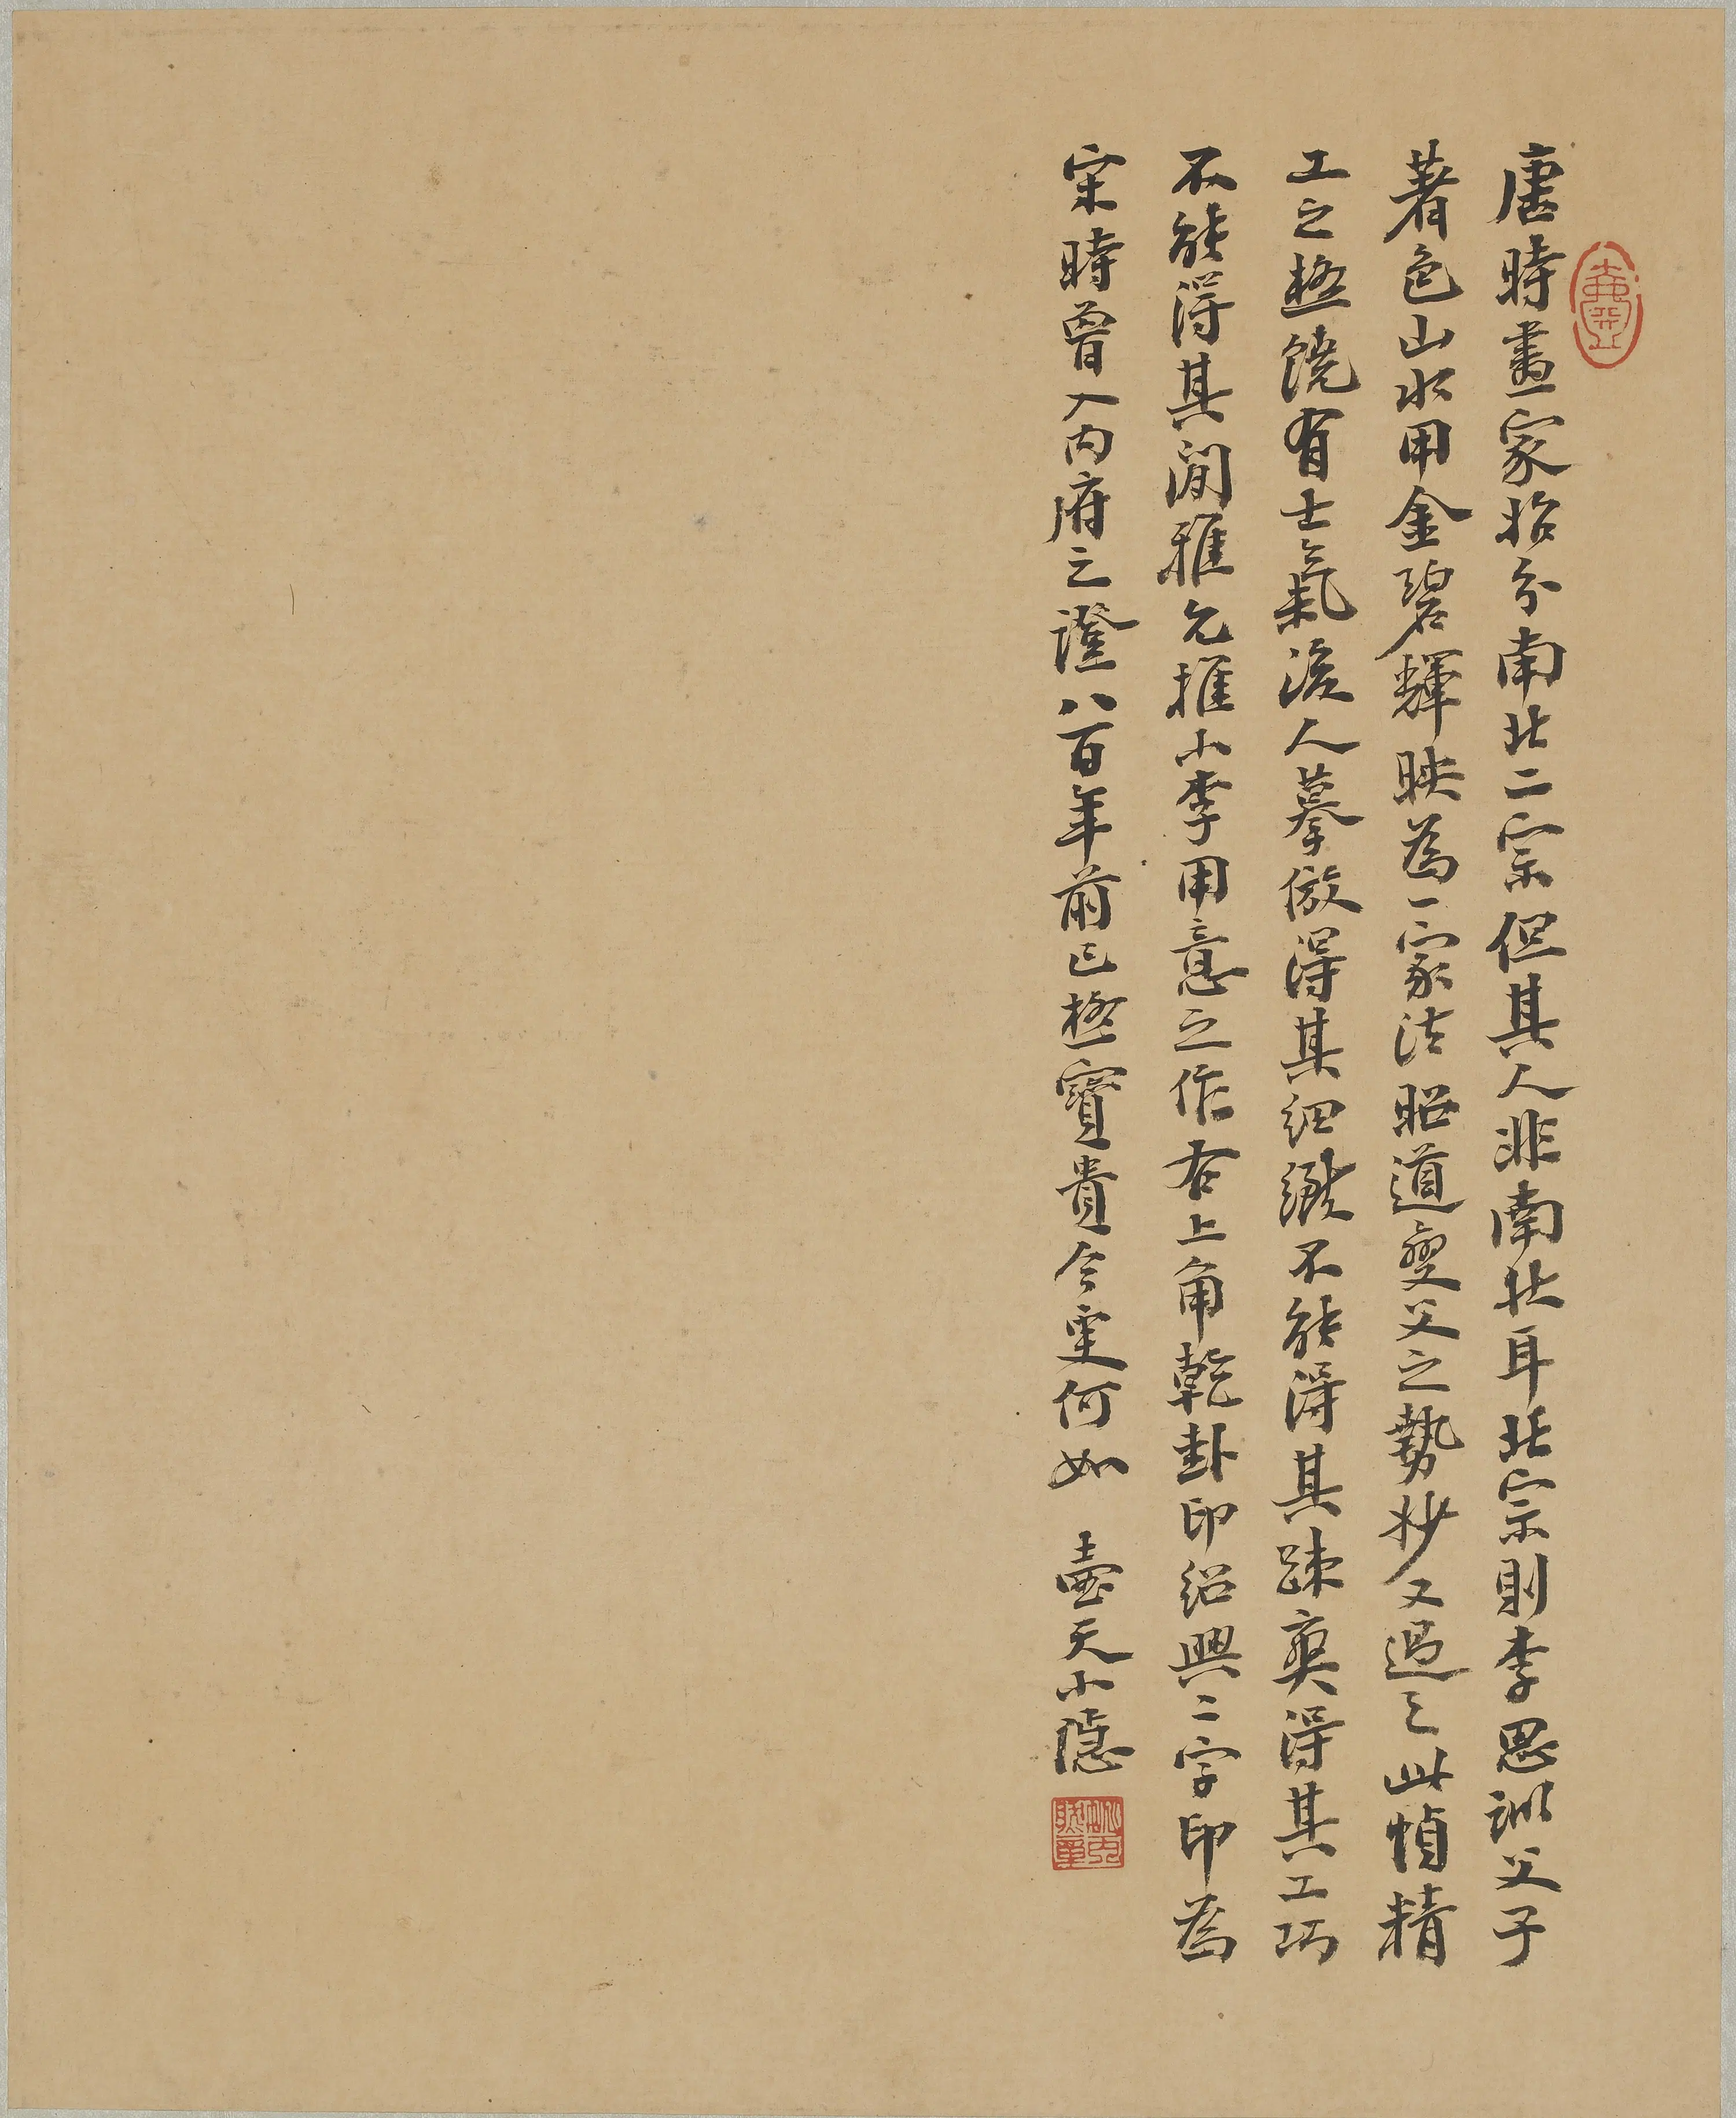 唐時畫家始分南北二宗但其人非南北耳北宗則李思訓父子
著色山水用金碧輝映為一家法昭道變父之勢妙又過之此幀精
工之極饒有士氣後人摹倣得其細緻不能得其疎爽得其工巧
不能得其閒雅允推小李用意之作右上角乾卦印紹興二字印為
宋時曾入內府之證八百年前已極寶貴今更何如 壺天小隱